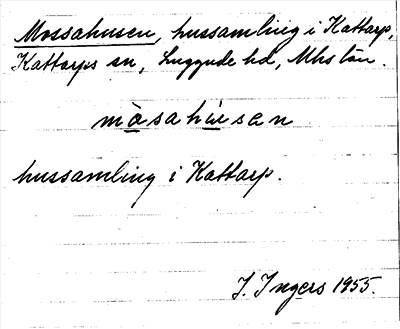 Mossahusen, hussamling i Kattarp,
Kattarps sn, Luggude hd, Mhs län.
mòsahùsan
hussamling i Kattarp.
J. Ingers 1955.